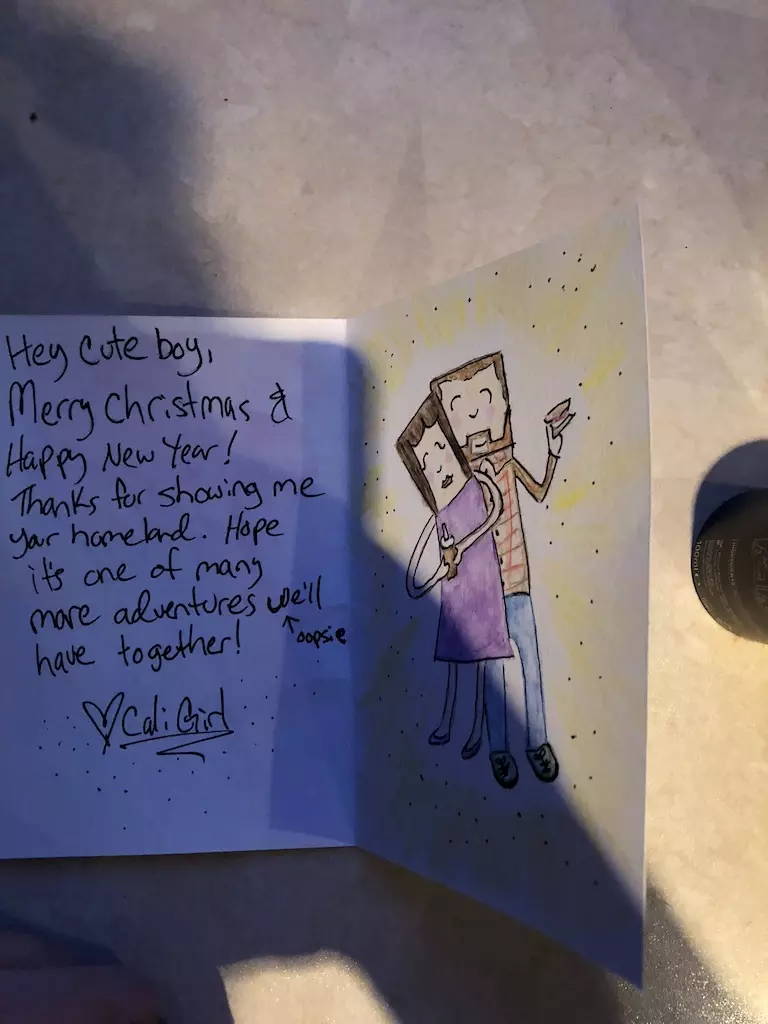 Hey Cute boy,
Merry Christmas &
Happy New Year!
Thanks for showing me
your homeland. Hope
it's one of many
more adventures we'll
oopsie
have together!
♡Cali Girl
100ml